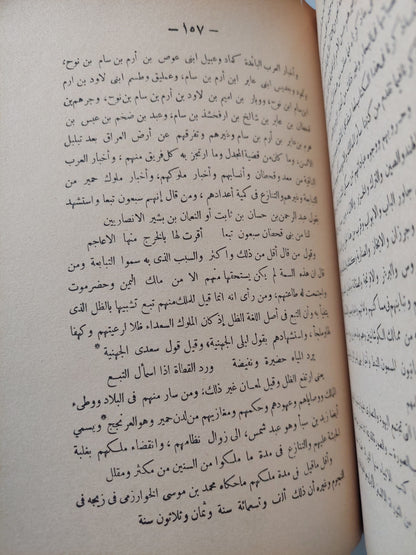 — ١٥٧ —
وأخبار العرب البائدة كعاد وعبيل ابنى عوص بن أرم بن سام بن نوح،
وثمود وجديس ابنى عابر بن أرم بن سام بن نوح، وعمليق وطسم ابنى لاوذ بن ارم
بن سام ابن نوح، ووبار بن اميم بن لاوذ بن أرم بن سام بن نوح، وجرهم بن
قحطان بن عابر بن شالخ بن أرفخشذ بن سام، وعبد بن ضخم بن عبس بن
هرم بن عابر بن أرم بن سام وغيرهم وتفرقهم عن أرض العراق بعد تبلبل
الالسن، وما كان من قصية المجدل وما ارتجز به كل فريق منهم، وأخبار العرب
الباقية من معد وقحطان وأنسابهم وأخبار ملوكهم، وأخبار ملوك حمير من
التبابعة وغيرهم والتنازع فى كمية أعدادهم، ومن قال إنهم سبعون تبعا واستشهد
بقول عبد الرحمن بن حسان بن ثابت أو النعمان بن بشير الانصاريين
لنا من بنى قحطان سبعون تبعا أقرت لها بالخرج منها الاعاجم
وقول من قال أقل من ذلك وأكثر والسبب الذى به سموا التبابعة ومن
قال ان هذه السمة لم يكن يستحقها منهم الا من مالك اليمن وحضرموت
واجتمعت له طاعتهم، ومن رأى انه انما قيل للملك منهم تبع تشبيها بالظل الذى
يتفيأ به وأن التبع فى أصل اللغة الظل إذ كان الملوك السعداء ظلا لرعيتهم وكهفا
وملجأ، واستشهادهم بقول ليلى الجهنية، وقيل قول سعدى الجهنية*
يرد المياه حضيرة ونفيضة ورد القطاة اذا اسمأل التبع
يعنى ارتفع الظل وقيل لمعان غير ذلك، ومن سار منهم فى البلاد ووطىء
الممالك ووصاياهم وعهودهم وحكمهم ومغازيهم من لدن حمير وهو العرنجج* ويسمي
أيضا زيد بن سبأ وهو عبد شمس، الى زوال نظامهم، وانقضاء ملكهم بغلبة
الحبشة عليهم والتنازع فى مدة ما ملكوا من السنين من مكثر ومقلل
وأقل ماقيل فى مدة ملكهم ماحكاه محمد بن موسى الخوارزمى فى زيجه فى
النجوم وغيره أن ذلك ألف وتسعمائة سنة وثمان وثلاثون سنة